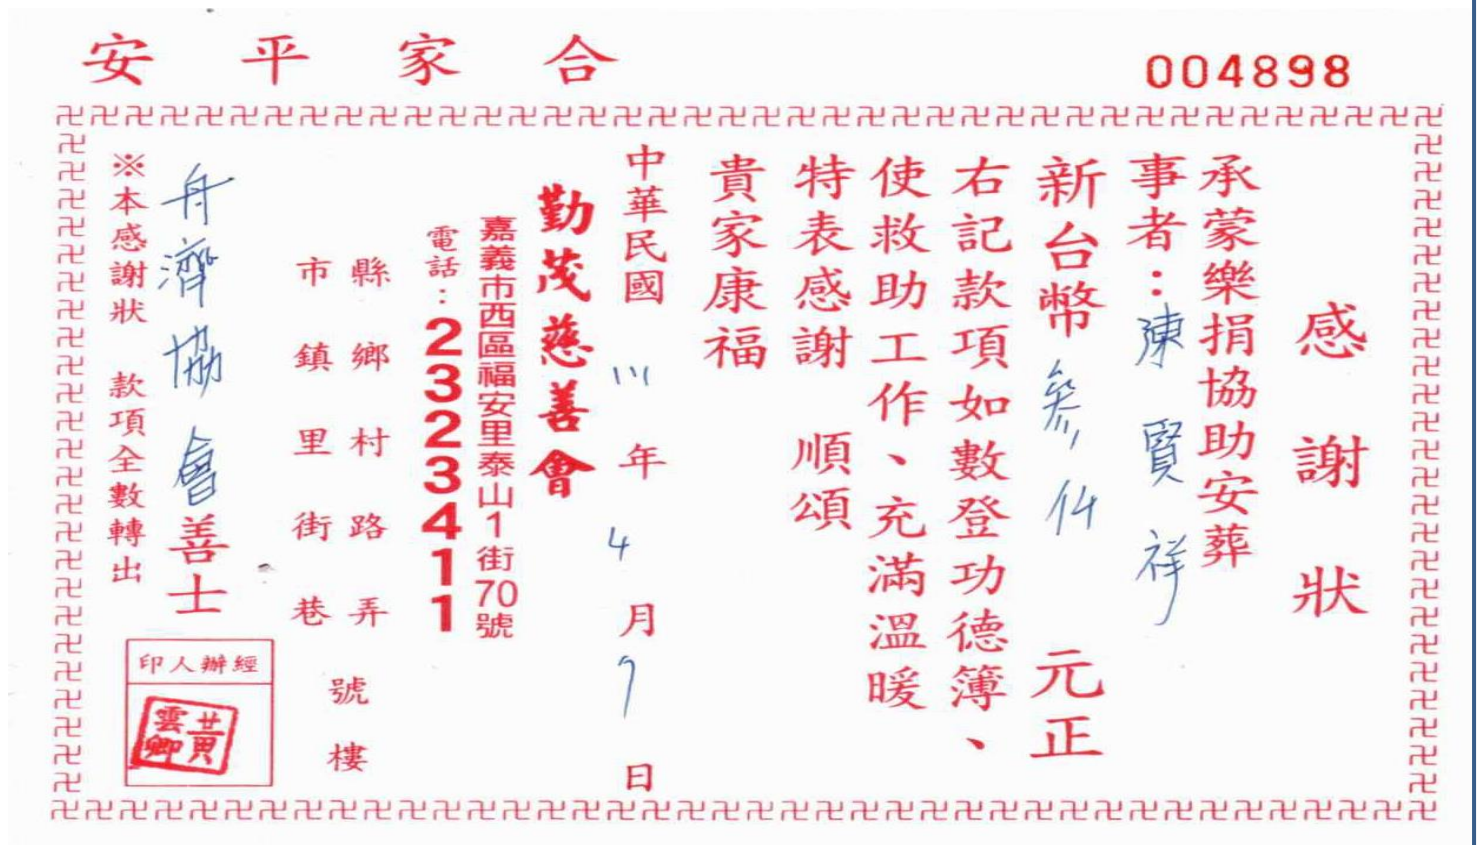 合家平安
004898
感謝狀
承蒙樂捐協助安葬
事者：陳賢祥
新台幣參仟元正
右記款項如數登功德簿、
使救助工作、充滿溫暖
特表感謝 順頌
貴家康福
中華民國111年4月日
勤茂慈善會
嘉義市西區福安里泰山1街70號
電話：2323411
縣鄉村路弄
號樓
市鎮里街巷
舟濟協會善士
※本感謝狀 款項全數轉出
經辦人印
黃雲卿